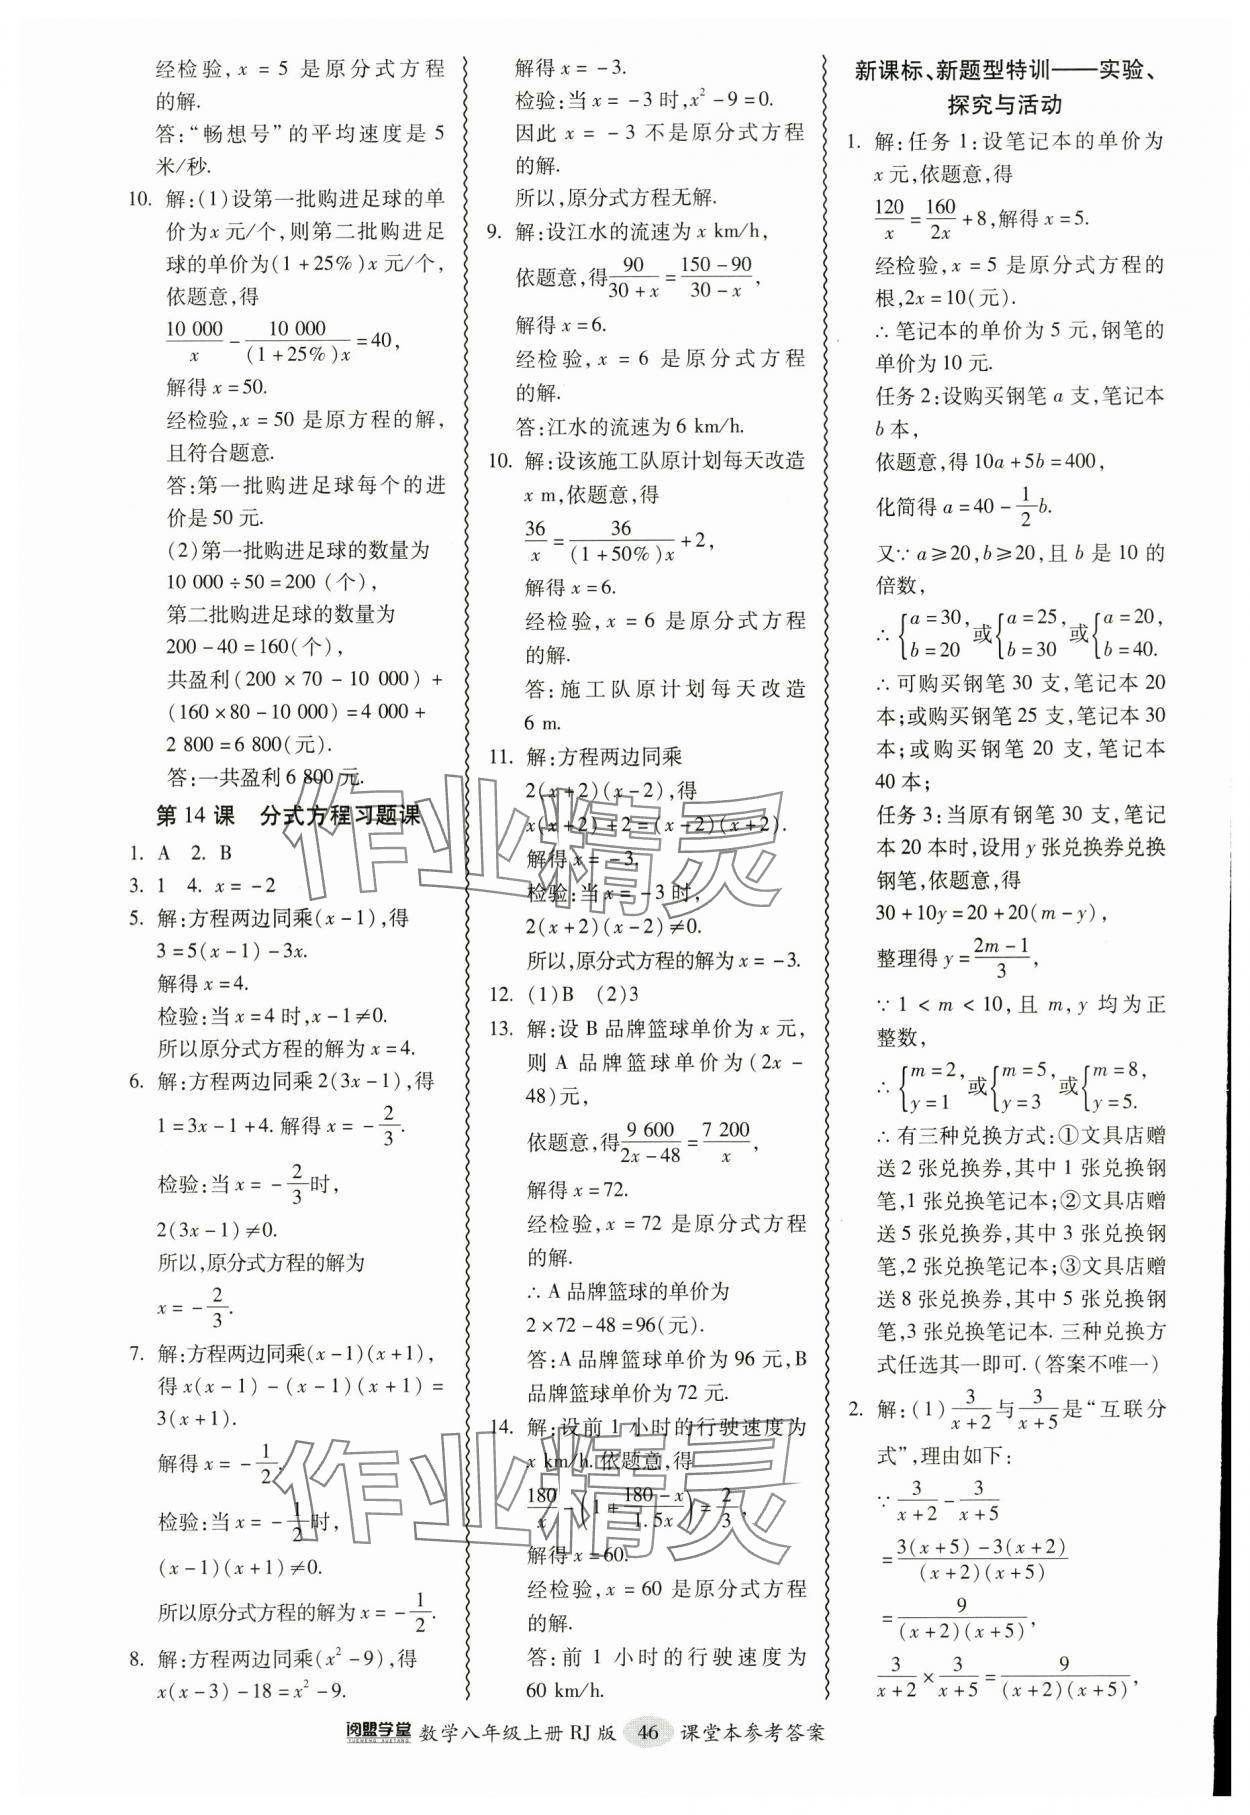 经检验,x = 5 是原分式方程
的解.
答:“畅想号”的平均速度是 5
米/秒.
10. 解:(1)设第一批购进足球的单
价为x 元/个,则第二批购进足
球的单价为(1+25%)x 元/个,
依题意,得
10 000/x - 10 000/((1+25%)x) = 40,
解得 x=50.
经检验,x=50 是原方程的解,
且符合题意.
答:第一批购进足球每个的进
价是 50 元.
(2)第一批购进足球的数量为
10 000÷50=200 (个),
第二批购进足球的数量为
200-40=160(个),
共盈利(200×70-10 000)+
(160×80-10 000)=4 000+
2 800=6 800(元).
答:一共盈利 6 800 元.
第 14 课 分式方程习题课
1. A 2. B
3. 1 4. x=-2
5. 解:方程两边同乘(x-1),得
3=5(x-1)-3x.
解得 x=4.
检验:当 x=4 时,x-1≠0.
所以原分式方程的解为 x=4.
6. 解:方程两边同乘 2(3x-1),得
1=3x-1+4. 解得 x=-2/3.
检验:当 x=-2/3时,
2(3x-1)≠0.
所以,原分式方程的解为
x=-2/3.
7. 解:方程两边同乘(x-1)(x+1),
得 x(x-1)-(x-1)(x+1)=
3(x+1).
解得 x=-1/2.
检验:当 x=-1/2时,
(x-1)(x+1)≠0.
所以原分式方程的解为 x=-1/2.
8. 解:方程两边同乘(x²-9),得
x(x-3)-18=x²-9.
解得 x=-3.
检验:当 x=-3 时,x²-9=0.
因此 x=-3 不是原分式方程
的解.
所以,原分式方程无解.
9. 解:设江水的流速为 x km/h,
依题意,得90/(30+x)=(150-90)/(30-x),
解得 x=6.
经检验,x=6 是原分式方程
的解.
答:江水的流速为 6 km/h.
10. 解:设该施工队原计划每天改造
x m,依题意,得
36/x=36/((1+50%)x)+2,
解得 x=6.
经检验,x=6 是原分式方程
的解.
答:施工队原计划每天改造
6 m.
11. 解:方程两边同乘
2(x+2)(x-2),得
x(x+2)+2=(x-2)(x+2).
解得 x=-3.
检验:当 x=-3 时,
2(x+2)(x-2)≠0.
所以,原分式方程的解为 x=-3.
12. (1)B (2)3
13. 解:设 B 品牌篮球单价为 x 元,
则 A 品牌篮球单价为(2x-
48)元,
依题意,得9 600/(2x-48)=7 200/x,
解得 x=72.
经检验,x=72 是原分式方程
的解.
∴A 品牌篮球的单价为
2×72-48=96(元).
答:A 品牌篮球单价为 96 元,B
品牌篮球单价为 72 元.
14. 解:设前 1 小时的行驶速度为
x km/h. 依题意,得
180/x-(1+(180-x)/1.5x)=2/3,
解得 x=60.
经检验,x=60 是原分式方程
的解.
答:前 1 小时的行驶速度为
60 km/h.
新课标、新题型特训——实验、
探究与活动
1. 解:任务 1:设笔记本的单价为
x 元,依题意,得
120/x=160/2x+8,解得 x=5.
经检验,x=5 是原分式方程的
根,2x=10(元).
∴笔记本的单价为 5 元,钢笔的
单价为 10 元.
任务 2:设购买钢笔 a 支,笔记本
b 本,
依题意,得 10a+5b=400,
化简得 a=40-1/2b.
又∵a≥20,b≥20,且 b 是 10 的
倍数,
∴{a=30, b=20 或{a=25, b=30 或{a=20, b=40.
∴可购买钢笔 30 支,笔记本 20
本;或购买钢笔 25 支,笔记本 30
本;或购买钢笔 20 支,笔记本
40 本;
任务 3:当原有钢笔 30 支,笔记
本 20 本时,设用 y 张兑换券兑换
钢笔,依题意,得
30+10y=20+20(m-y),
整理得 y=(2m-1)/3,
∵1<m<10,且 m,y 均为正
整数,
∴{m=2, y=1 或{m=5, y=3 或{m=8, y=5.
∴有三种兑换方式:①文具店赠
送 2 张兑换券,其中 1 张兑换钢
笔,1 张兑换笔记本;②文具店赠
送 5 张兑换券,其中 3 张兑换钢
笔,2 张兑换笔记本;③文具店赠
送 8 张兑换券,其中 5 张兑换钢
笔,3 张兑换笔记本. 三种兑换方
式任选其一即可. (答案不唯一)
2. 解:(1)3/(x+2)与3/(x+5)是“互联分
式”,理由如下:
∵3/(x+2)-3/(x+5)
=(3(x+5)-3(x+2))/((x+2)(x+5))
=9/((x+2)(x+5)),
3/(x+2)×3/(x+5)=9/((x+2)(x+5)),
阅盟学堂 YUEMENG XUETANG 数学八年级上册 RJ 版 46 课堂本参考答案
作业精灵
作业精灵